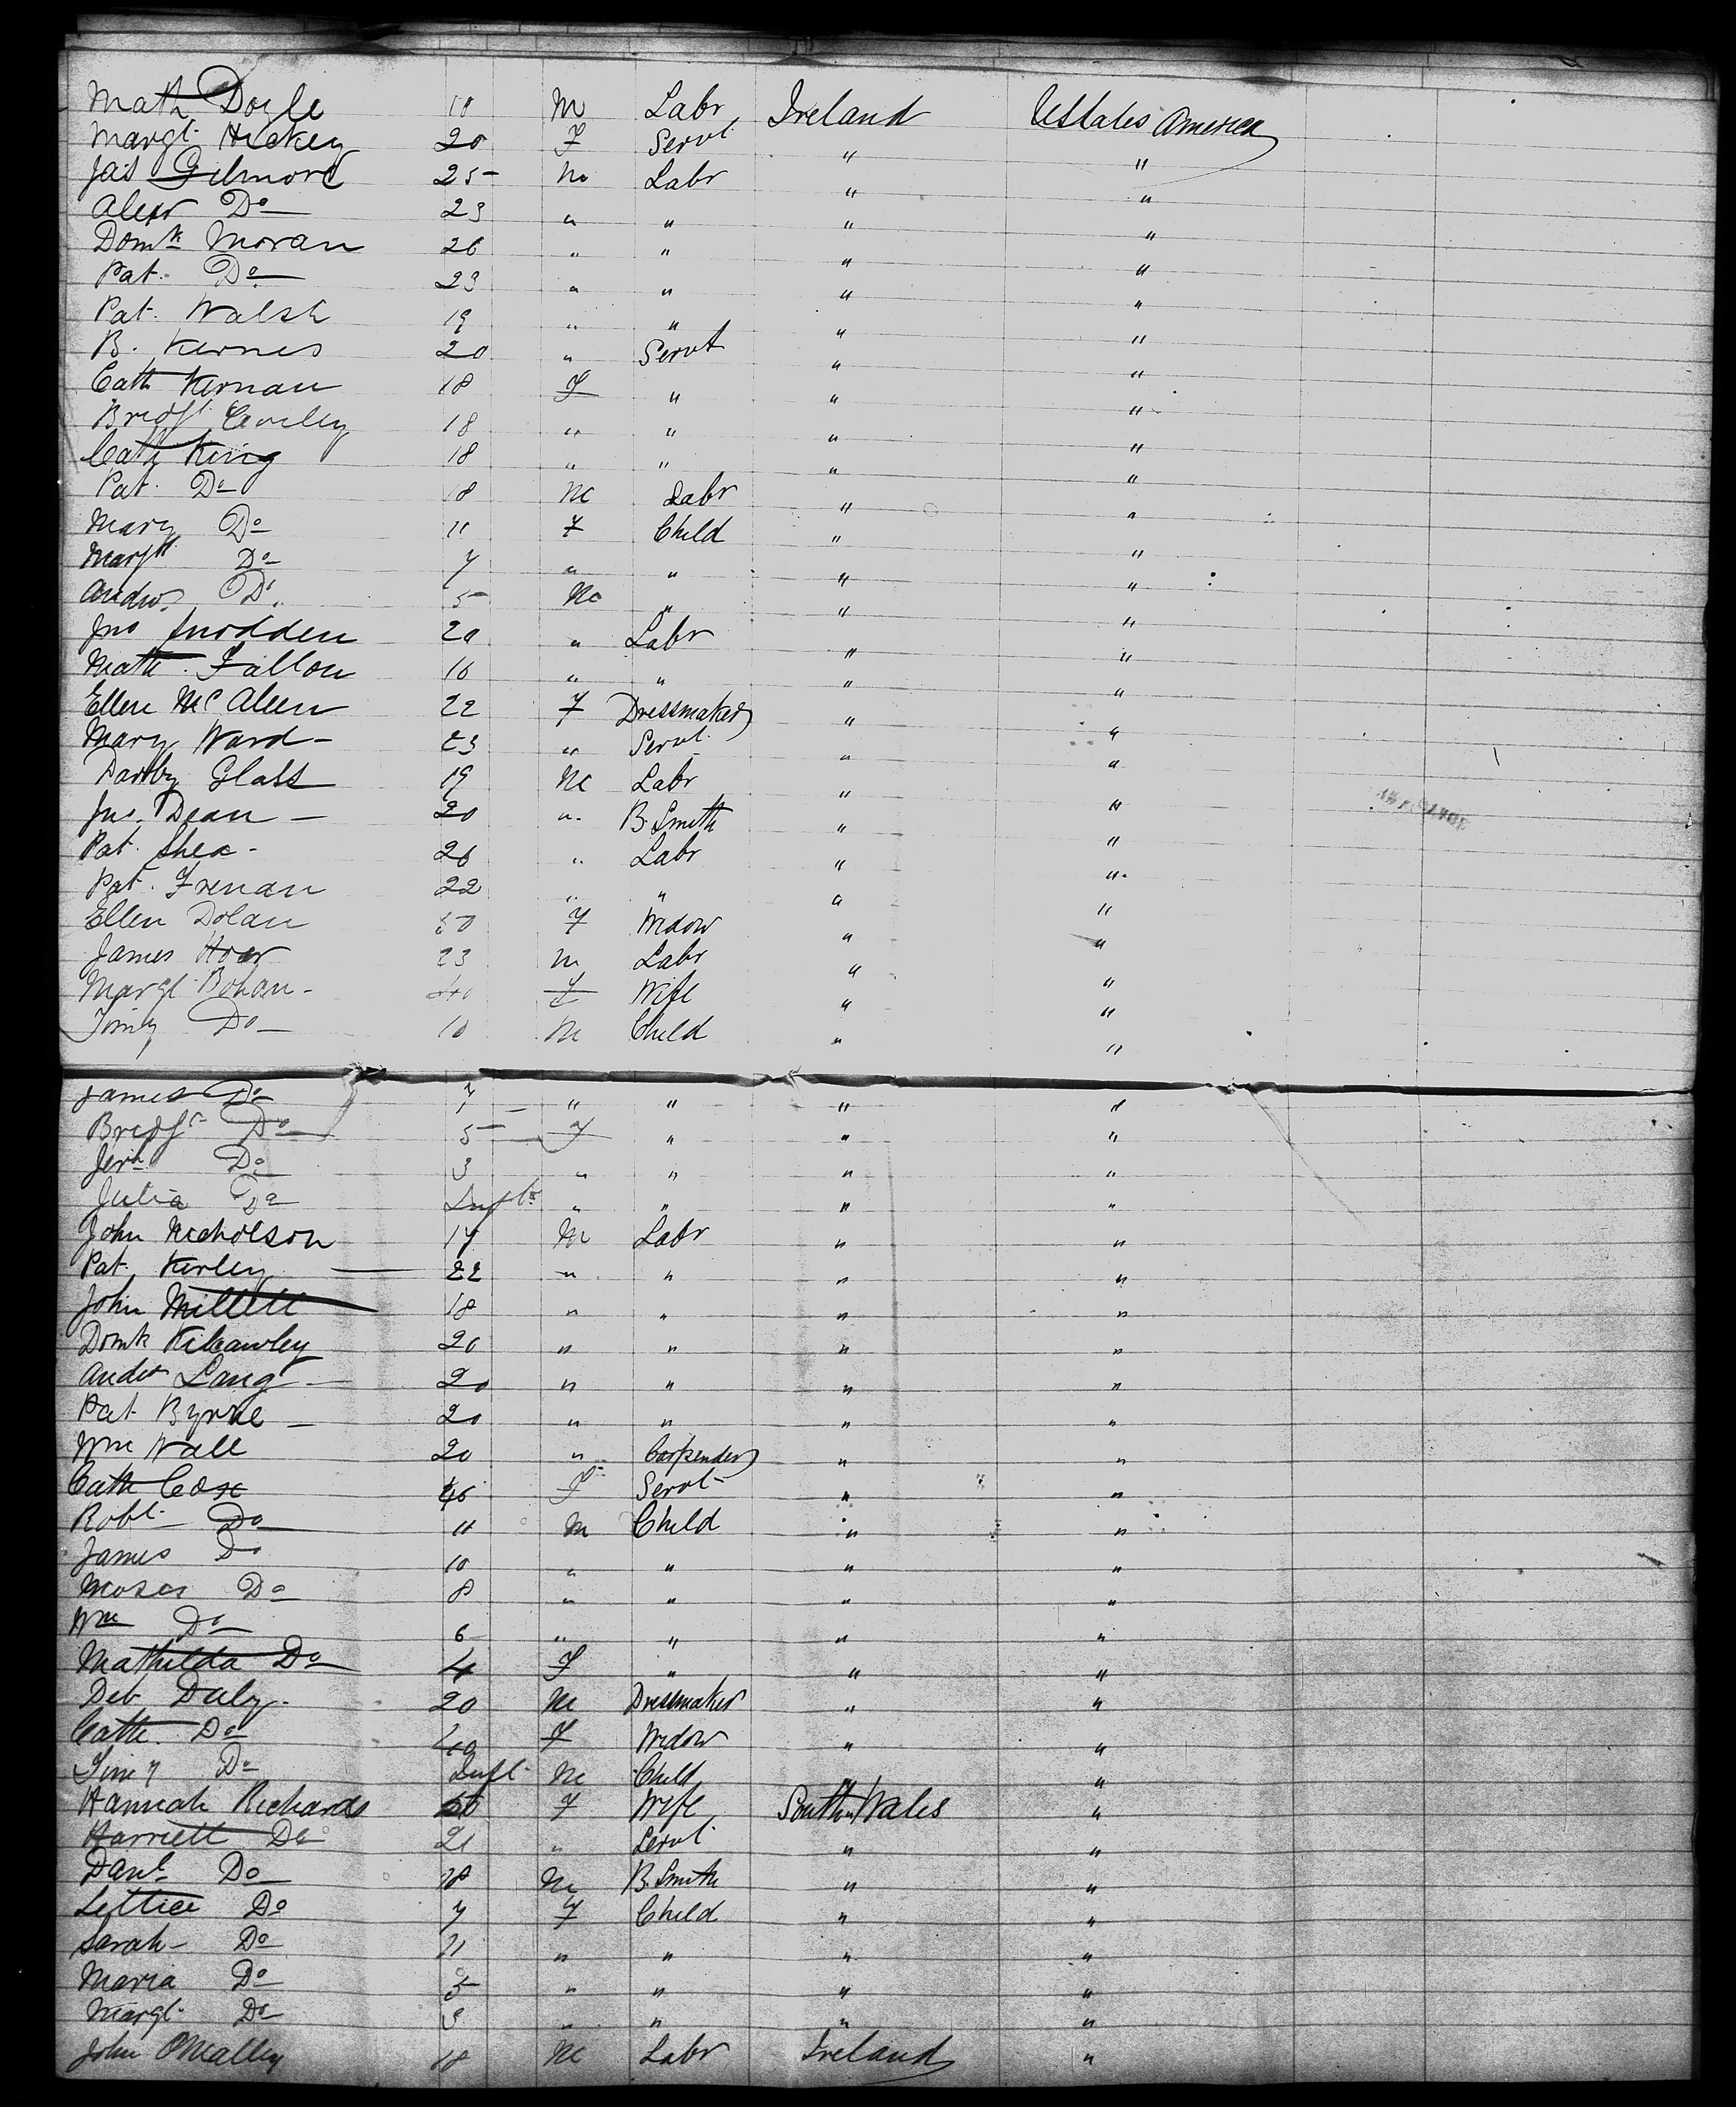 Math Doyle 18 M Labr Ireland UStates America
Margt Hickey 20 F Servt " "
Jas Gilmore 25 M Labr " "
Alexr Do 23 " " " "
Domk Moran 26 " " " "
Pat. Do 23 " " " "
Pat. Walsh 19 " " " "
B. Kernes 20 " Servt " "
Cath Kernan 18 F " " "
Bridgt 18 " " " "
Cath King 18 " " " "
Pat. Do 18 M Labr " "
Mary Do 11 F Child " "
Margt Do 7 " " " "
Andw Do 5 M " " "
Jno Snodden 20 " Labr " "
Math. Fallon 16 " " " "
Ellen McAleen 22 F Dressmaker " "
Mary Ward 23 " Servt " "
Darby Glass 19 M Labr " "
Jno. Dean 20 " B. Smith " "
Pat. Shea 26 " Labr " "
Pat. Frenan 22 " " " "
Ellen Dolan 50 F Widow " "
James Hoar 23 M Labr " "
Margt Bohan 40 F Wife " "
Timy Do 10 M Child " "
James Do 7 " " " "
Bridgt Do 5 F " " "
Jerh Do 3 " " " "
Julia Do Inft " " " "
John Nicholson 17 M Labr " "
Pat. Kerley 22 " " " "
John Millett 18 " " " "
Domk Kilcawley 20 " " " "
Andw Lang 20 " " " "
Pat Byrne 20 " " " "
Wm Wall 20 " Carpender " "
Cath Cox 46 F Servt " "
Robt Do 11 M Child " "
James Do 10 " " " "
Moses Do 8 " " " "
Wm Do 6 " " " "
Mathilda Do 4 F " " "
Deb Daly 20 M Dressmaker " "
Cath. Do 40 F Widow " "
Timy Do Inft M Child " "
Hannah Richards F Wife South Wales "
Harriett Do 21 " Servt " "
Danl Do 18 M B. Smith " "
Lettice Do 7 F Child " "
Sarah Do 11 " " " "
Maria Do 5 " " " "
Margt Do 3 " " " "
John OMalley 18 M Labr Ireland "